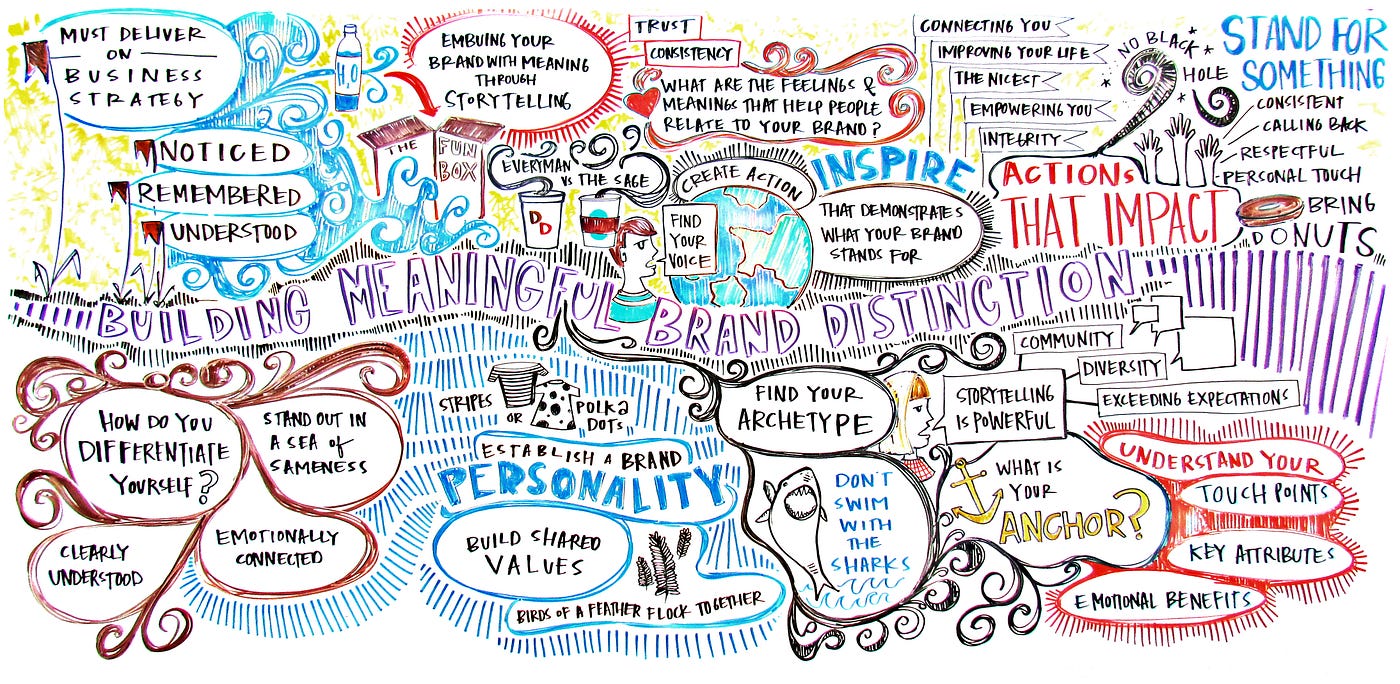 MUST DELIVER
ON
BUSINESS
STRATEGY
NOTICED
REMEMBERED
UNDERSTOOD
H2O
EMBUING YOUR
BRAND WITH MEANING
THROUGH
STORYTELLING
THE FUN
BOX
EVERYMAN
VS THE SAGE
D
D
TRUST
CONSISTENCY
WHAT ARE THE FEELINGS &
MEANINGS THAT HELP PEOPLE
RELATE TO YOUR BRAND?
CREATE ACTION
FIND
YOUR
VOICE
INSPIRE
THAT DEMONSTRATES
WHAT YOUR BRAND
STANDS FOR
CONNECTING YOU
IMPROVING YOUR LIFE
THE NICEST
EMPOWERING YOU
INTEGRITY
NO BLACK
HOLE
STAND FOR
SOMETHING
CONSISTENT
CALLING BACK
RESPECTFUL
PERSONAL TOUCH
ACTIONS
THAT IMPACT
BRING
DONUTS
BUILDING MEANINGFUL BRAND DISTINCTION
HOW DO YOU
DIFFERENTIATE
YOURSELF?
STAND OUT IN
A SEA OF
SAMENESS
CLEARLY
UNDERSTOOD
EMOTIONALLY
CONNECTED
STRIPES
OR
POLKA
DOTS
ESTABLISH A BRAND
PERSONALITY
BUILD SHARED
VALUES
BIRDS OF A FEATHER FLOCK TOGETHER
FIND YOUR
ARCHETYPE
DON'T
SWIM
WITH
THE
SHARKS
STORYTELLING
IS POWERFUL
COMMUNITY
DIVERSITY
EXCEEDING EXPECTATIONS
WHAT IS
YOUR
ANCHOR?
UNDERSTAND YOUR
TOUCH POINTS
KEY ATTRIBUTES
EMOTIONAL BENEFITS